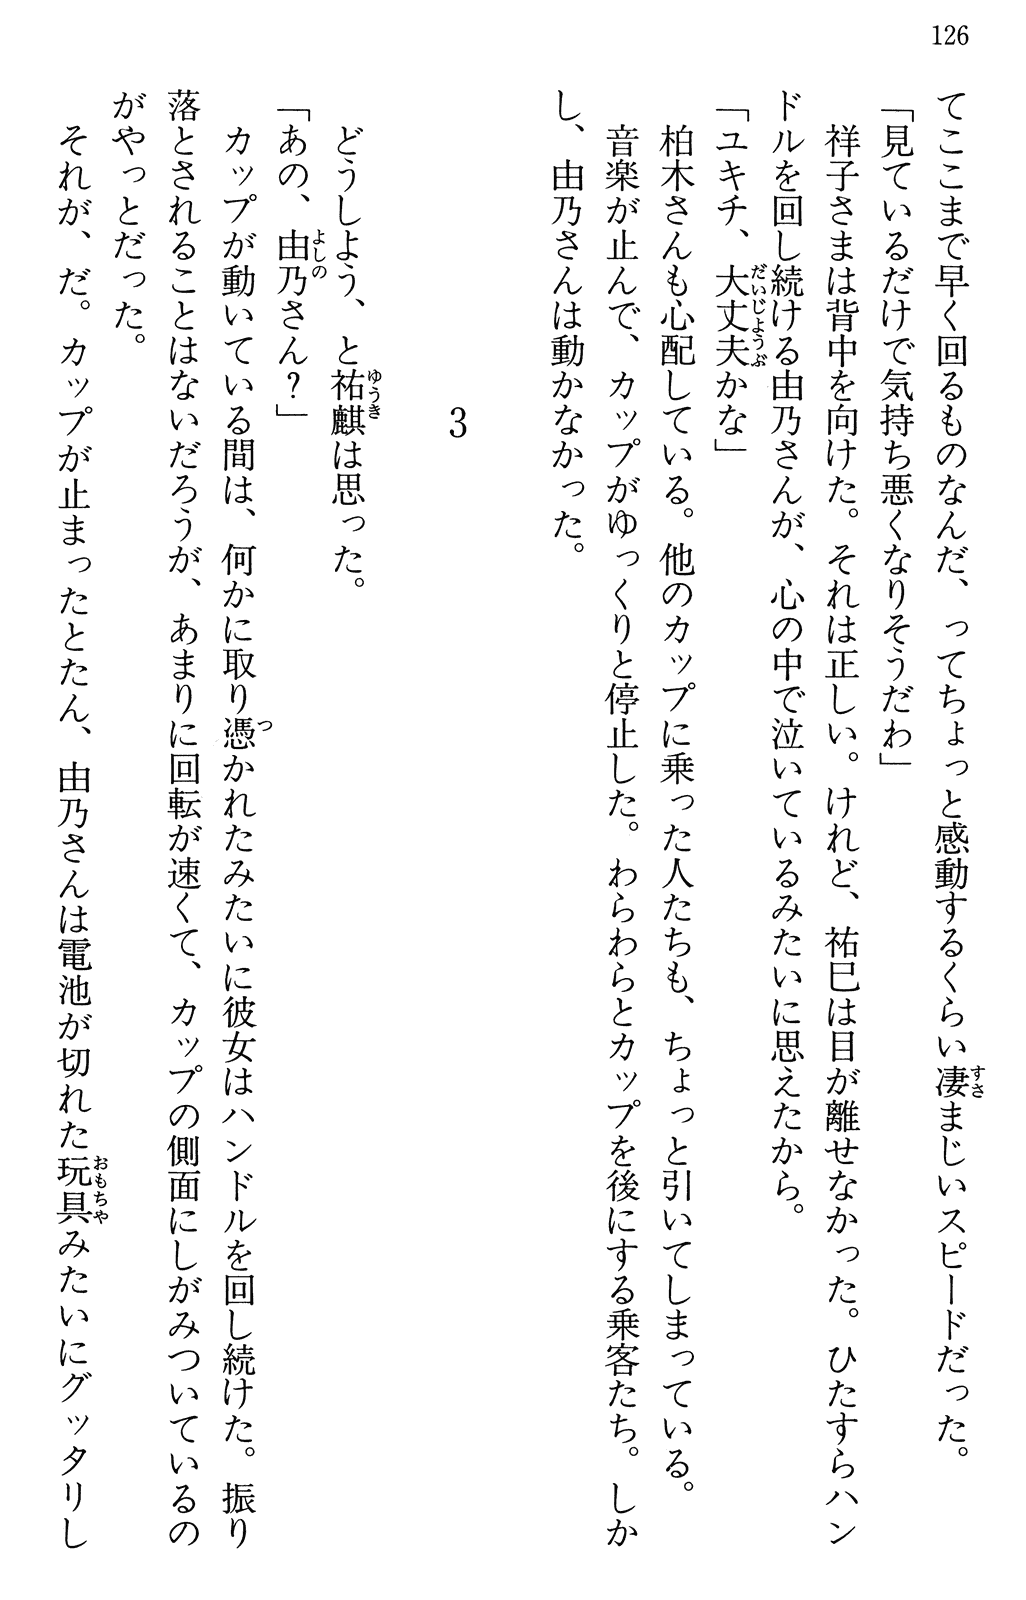 126
てここまで早く回るものなんだ、ってちょっと感動するくらい凄まじいスピードだった。
「見ているだけで気持ち悪くなりそうだわ」
祥子さまは背中を向けた。それは正しい。けれど、祐巳は目が離せなかった。ひたすらハン
ドルを回し続ける由乃さんが、心の中で泣いているみたいに思えたから。
「ユキチ、大丈夫かな」
柏木さんも心配している。他のカップに乗った人たちも、ちょっと引いてしまっている。
音楽が止んで、カップがゆっくりと停止した。わらわらとカップを後にする乗客たち。しか
し、由乃さんは動かなかった。
3
どうしよう、と祐麒は思った。
「あの、由乃さん?」
カップが動いている間は、何かに取り憑かれたみたいに彼女はハンドルを回し続けた。振り
落とされることはないだろうが、あまりに回転が速くて、カップの側面にしがみついているの
がやっとだった。
それが、だ。カップが止まったとたん、由乃さんは電池が切れた玩具みたいにグッタリし